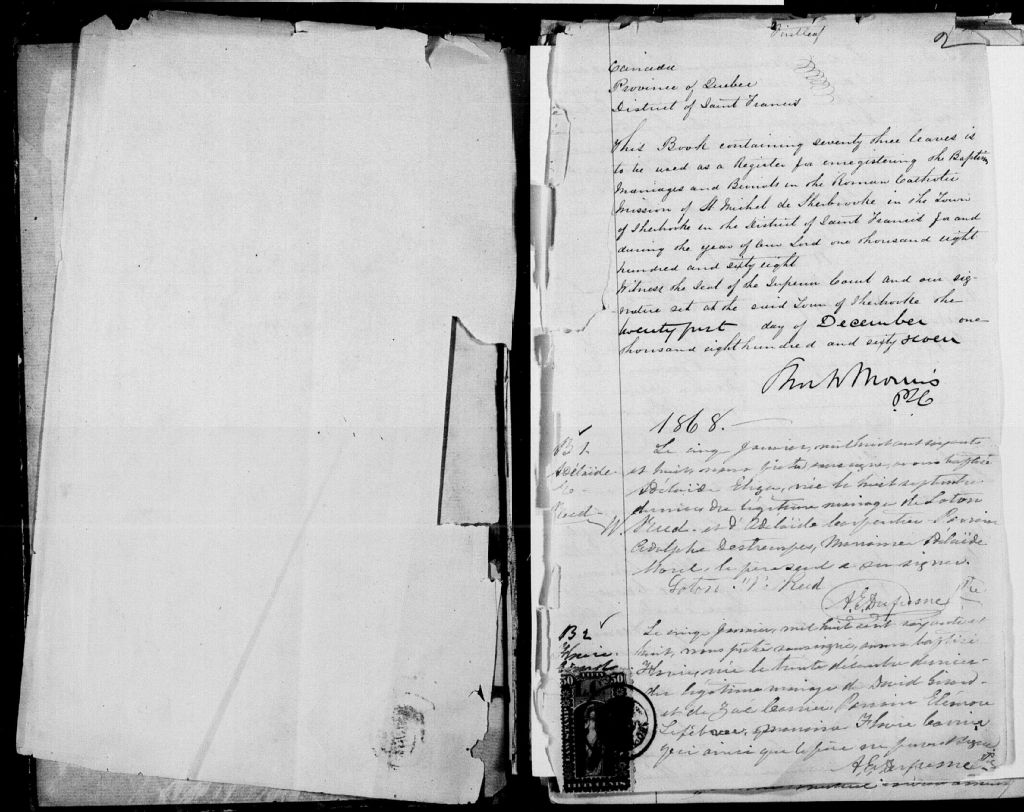 First leaf
2
Canada
Province of Quebec
District of Saint Francis
This Book containing seventy three leaves is
to be used as a Register for enregistering the Baptisms
Marriages and Burials in the Roman Catholic
Mission of St Michel de Sherbrooke in the Town
of Sherbrooke in the District of Saint Francis for and
during the year of Our Lord one thousand eight
hundred and sixty eight
Witness the Seal of the Superior Court and our sig-
nature set at the said Town of Sherbrooke the
twenty first day of December one
thousand eight hundred and sixty seven
Morris
P.S.C
1868.
B 1.
Adélaïde
Reed
Le cinq Janvier, mil huit cent soixante
et huit, nous prêtre soussigné, avons baptisé
Adélaïde Eliza, née le huit septembre
dernier du légitime mariage de Loton
W. Reed et d'Adélaïde Carpentier Parrain
Adolphe Destrempes, Marraine Adélaïde
Morel, le père seul a su signer.
Loton W. Reed
A.E. Dufresne Ptre
B 2
Le cinq Janvier, mil huit cent soixante et
huit, nous prêtre soussigné, avons baptisé
née le trente décembre dernier
du légitime mariage de David
et de Zoé Carrier Parrain Elémore
Lefebvre, marraine
qui ainsi que le père ne savent signer.
A.E. Dufresne Ptre
50 50